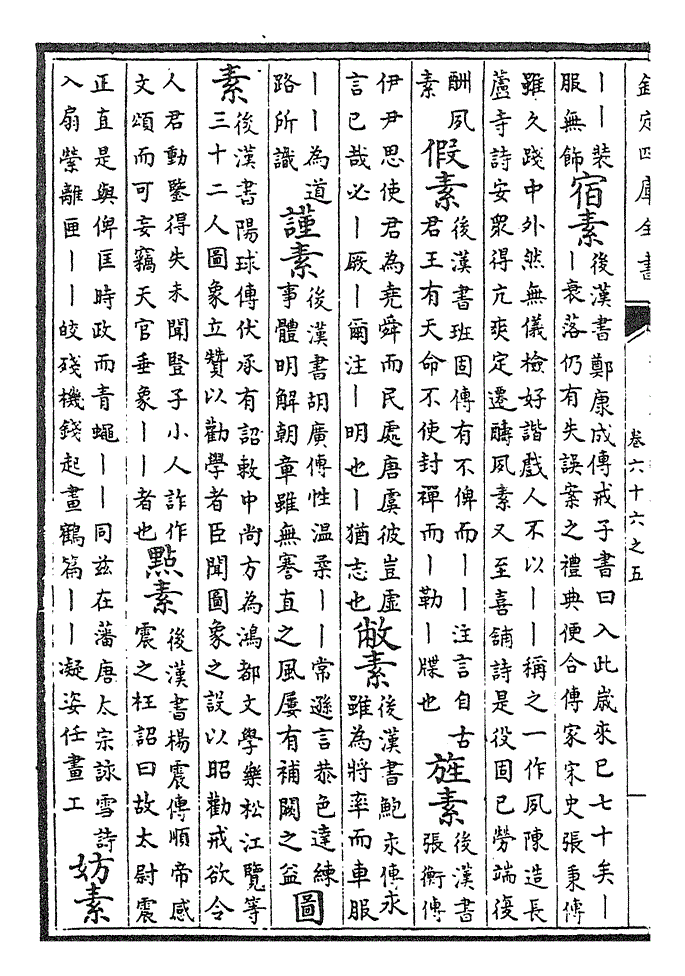 欽定四庫全書
卷六十六之五
丨丨裝
服無飾
宿素
後漢書鄭康成傳戒子書曰入此歲來已七十矣丨
丨衰落仍有失誤案之禮典便合傳家宋史張秉傳
雖久踐中外然無儀檢好諧戲人不以丨丨稱之一作夙陳造長
蘆寺詩安衆得亢爽定遷醻夙素又至喜舖詩是役固已勞端復
酬夙
素
假素
後漢書班固傳有不俾而丨丨注言自古
君王有天命不使封禪而丨勒丨牒也
旌素
後漢書
張衡傳
伊尹思使君為堯舜而民處唐虞彼豈虛
言已哉必丨厥丨爾注丨明也丨猶志也
敝素
後漢書鮑永傳永
雖為將率而車服
丨丨為道
路所識
謹素
後漢書胡廣傳性温柔丨丨常遜言恭色達練
事體明解朝章雖無謇直之風屢有補闕之益
圖
素
後漢書陽球傳伏承有詔敕中尚方為鴻都文學樂松江覽等
三十二人圖象立贊以勸學者臣聞圖象之設以昭勸戒欲令
人君動鑒得失未聞豎子小人詐作
文頌而可妄竊天官垂象丨丨者也
點素
後漢書楊震傳順帝感
震之枉詔曰故太尉震
正直是與俾匡時政而青蠅丨丨同兹在藩唐太宗詠雪詩
入扇縈離匣丨丨皎殘機錢起畫鶴篇丨丨凝姿任畫工
妨素